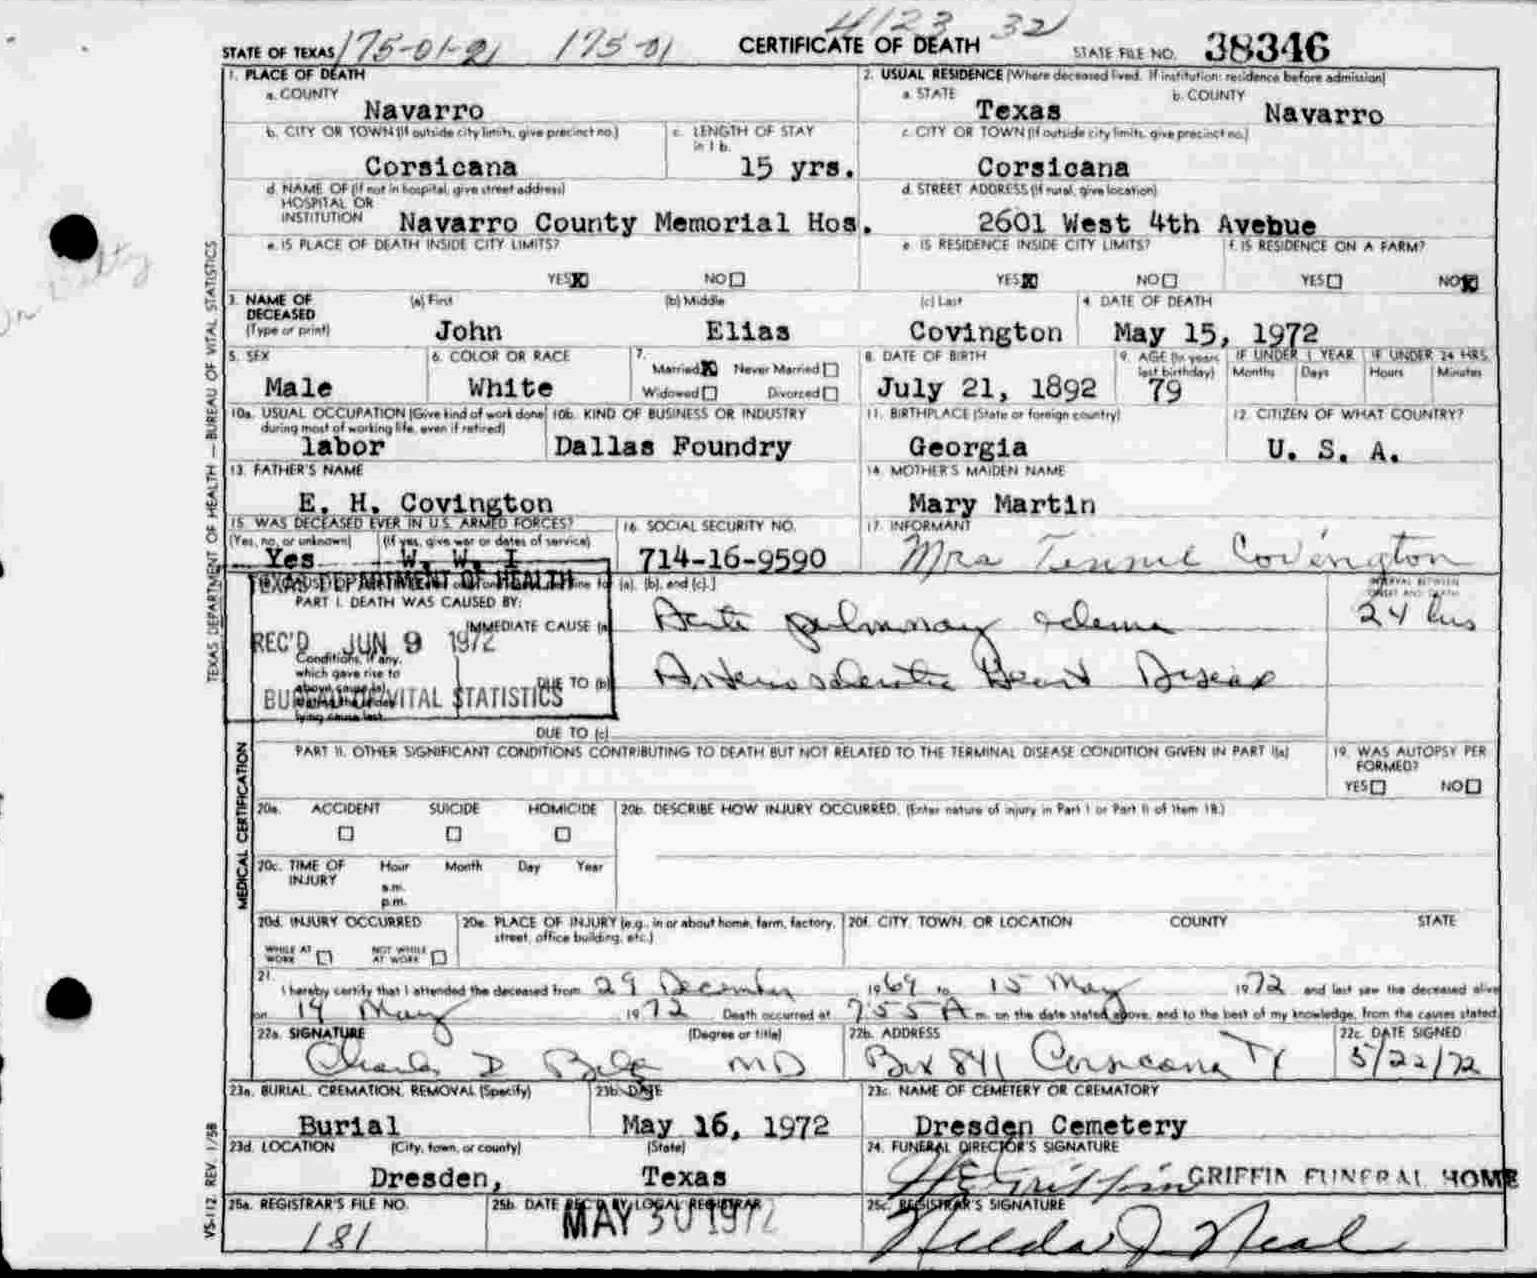 4123 32
STATE OF TEXAS 175-01-21 175-01 CERTIFICATE OF DEATH STATE FILE NO. 38346
1. PLACE OF DEATH 2. USUAL RESIDENCE (Where deceased lived. If institution: residence before admission)
a. COUNTY a. STATE b. COUNTY
Navarro Texas Navarro
b. CITY OR TOWN (If outside city limits, give precinct no.) c. LENGTH OF STAY in 1 b. c. CITY OR TOWN (If outside city limits, give precinct no.)
Corsicana 15 yrs. Corsicana
d. NAME OF (If not in hospital, give street address) d. STREET ADDRESS (If rural, give location)
HOSPITAL OR
INSTITUTION Navarro County Memorial Hos. 2601 West 4th Avebue
e. IS PLACE OF DEATH INSIDE CITY LIMITS? e. IS RESIDENCE INSIDE CITY LIMITS? f. IS RESIDENCE ON A FARM?
YES X NO YES X NO YES NO X
3. NAME OF DECEASED (a) First (b) Middle (c) Last 4. DATE OF DEATH
(Type or print) John Elias Covington May 15, 1972
5. SEX 6. COLOR OR RACE 7. 8. DATE OF BIRTH 9. AGE (In years last birthday) IF UNDER 1 YEAR IF UNDER 24 HRS.
Married X Never Married Months Days Hours Minutes
Widowed Divorced
Male White July 21, 1892 79
10a. USUAL OCCUPATION (Give kind of work done during most of working life, even if retired) 10b. KIND OF BUSINESS OR INDUSTRY 11. BIRTHPLACE (State or foreign country) 12. CITIZEN OF WHAT COUNTRY?
labor Dallas Foundry Georgia U. S. A.
13. FATHER'S NAME 14. MOTHER'S MAIDEN NAME
E. H. Covington Mary Martin
15. WAS DECEASED EVER IN U.S. ARMED FORCES? 16. SOCIAL SECURITY NO. 17. INFORMANT
(Yes, no, or unknown) (If yes, give war or dates of service)
Yes W. W. I 714-16-9590 Mrs Tennie Covington
TEXAS DEPARTMENT OF HEALTH (a), (b), and (c).] INTERVAL BETWEEN ONSET AND DEATH
PART I. DEATH WAS CAUSED BY:
IMMEDIATE CAUSE (a) Acute pulmonary edema 24 hrs
REC'D JUN 9 1972
Conditions, if any,
which gave rise to
DUE TO (b) Arteriosclerotic Heart Disease
BUREAU OF VITAL STATISTICS
lying cause last.
DUE TO (c)
PART II. OTHER SIGNIFICANT CONDITIONS CONTRIBUTING TO DEATH BUT NOT RELATED TO THE TERMINAL DISEASE CONDITION GIVEN IN PART I(a) 19. WAS AUTOPSY PERFORMED?
YES NO
20a. ACCIDENT SUICIDE HOMICIDE 20b. DESCRIBE HOW INJURY OCCURRED. (Enter nature of injury in Part I or Part II of Item 18.)
20c. TIME OF INJURY Hour Month Day Year
a.m.
p.m.
20d. INJURY OCCURRED 20e. PLACE OF INJURY (e.g., in or about home, farm, factory, street, office building, etc.) 20f. CITY, TOWN, OR LOCATION COUNTY STATE
WHILE AT WORK NOT WHILE AT WORK
21. I hereby certify that I attended the deceased from 29 December 1969 to 15 May 1972 and last saw the deceased alive
on 14 May 1972 Death occurred at 7:55 A m. on the date stated above, and to the best of my knowledge, from the causes stated.
22a. SIGNATURE (Degree or title) 22b. ADDRESS 22c. DATE SIGNED
Charles D MD Box 841 Corsicana Tx 5/22/72
23a. BURIAL, CREMATION, REMOVAL (Specify) 23b. DATE 23c. NAME OF CEMETERY OR CREMATORY
Burial May 16, 1972 Dresden Cemetery
23d. LOCATION (City, town, or county) (State) 24. FUNERAL DIRECTOR'S SIGNATURE
Dresden, Texas Griffin GRIFFIN FUNERAL HOME
25a. REGISTRAR'S FILE NO. 25b. DATE REC'D BY LOCAL REGISTRAR 25c. REGISTRAR'S SIGNATURE
181 MAY 30 1972 Neal
TEXAS DEPARTMENT OF HEALTH — BUREAU OF VITAL STATISTICS
MEDICAL CERTIFICATION
VS-112 REV. 1/58